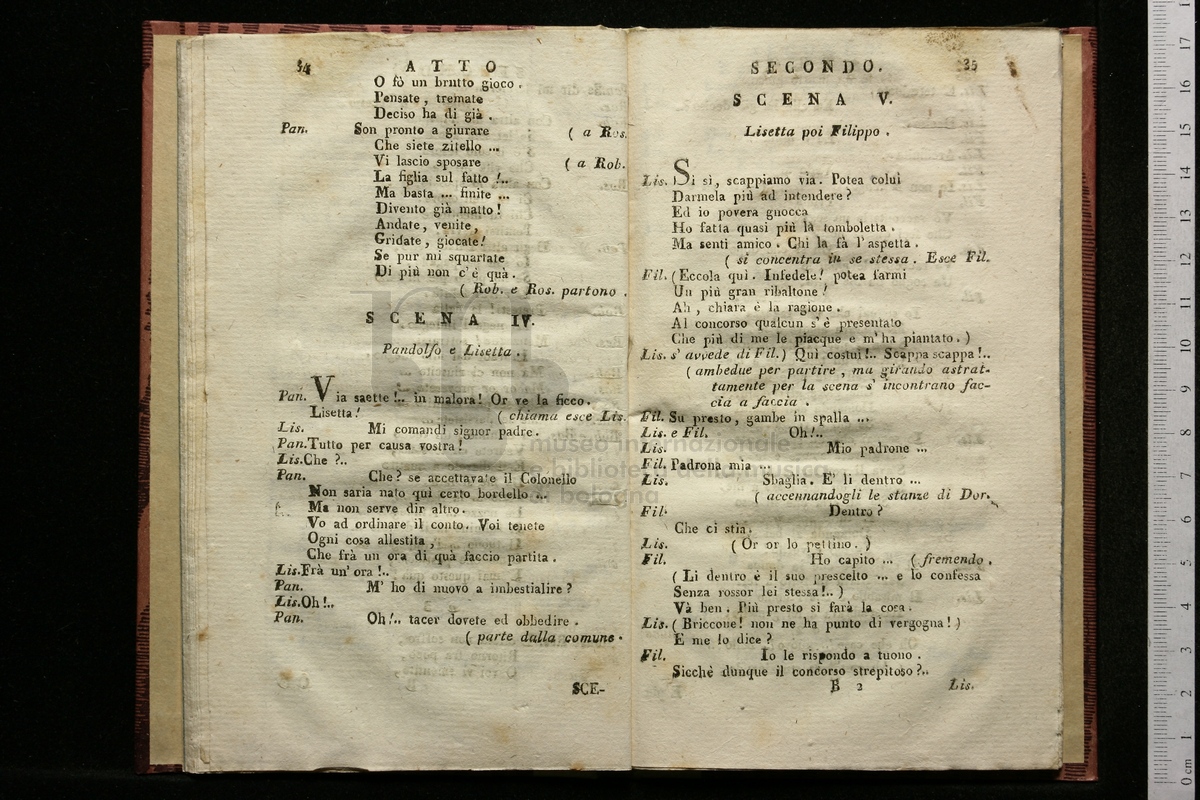 34 ATTO
O fò un brutto gioco.
Pensate, tremate
Deciso ha di già.
Pan. Son pronto a giurare ( a Ros.
Che siete zitello ...
Vi lascio sposare ( a Rob.
La figlia sul fatto!..
Ma basta ... finite ...
Divento già matto!
Andate, venite,
Gridate, giocate!
Se pur mi squartate
Di più non c'è quà.
( Rob. e Ros. partono.
SCENA IV.
Pandolfo e Lisetta.
Pan. Via saette!.. in malora! Or ve la ficco.
Lisetta! ( chiama esce Lis.
Lis. Mi comandi signor padre.
Pan. Tutto per causa vostra!
Lis. Che?..
Pan. Che? se accettavate il Colonello
Non saria nato quì certo bordello ...
Ma non serve dir altro.
Vo ad ordinare il conto. Voi tenete
Ogni cosa allestita,
Che frà un ora di quà faccio partita.
Lis. Frà un' ora!..
Pan. M' ho di nuovo a imbestialire?
Lis. Oh!..
Pan. Oh!.. tacer dovete ed obbedire.
( parte dalla comune.
SCE-
SECONDO. 35
SCENA V.
Lisetta poi Filippo.
Lis. Si sì, scappiamo via. Potea colui
Darmela più ad intendere?
Ed io povera gnocca
Ho fatta quasi più là tomboletta.
Ma senti amico. Chi la fà l'aspetta.
( si concentra in se stessa. Esce Fil.
Fil. (Eccola quì. Infedele! potea farmi
Un più gran ribaltone!
Ah, chiara è la ragione.
Al concorso qualcun s'è presentato
Che più di me le piacque e m'ha piantato.)
Lis. s' avvede di Fil.) Quì costui!.. Scappa scappa!..
( ambedue per partire, ma girando astrat-
tamente per la scena s' incontrano fac-
cia a faccia.
Fil. Su presto, gambe in spalla ...
Lis. e Fil. Oh!..
Lis. Mio padrone ...
Fil. Padrona mia ...
Lis. Sbaglia. E' lì dentro ...
( accennandogli le stanze di Dor.
Fil. Dentro?
Che ci stia.
Lis. (Or or lo pettino.)
Fil. Ho capito ... (fremendo.
( Lì dentro è il suo prescelto ... e lo confessa
Senza rossor lei stessa!..)
Và ben. Più presto si farà la cosa.
Lis. ( Briccone! non ne ha punto di vergogna!)
E me lo dice?
Fil. Io le rispondo a tuono.
Sicchè dunque il concorso strepitoso?..
B 2 Lis.
museo internazionale
e biblioteca della musica
bologna